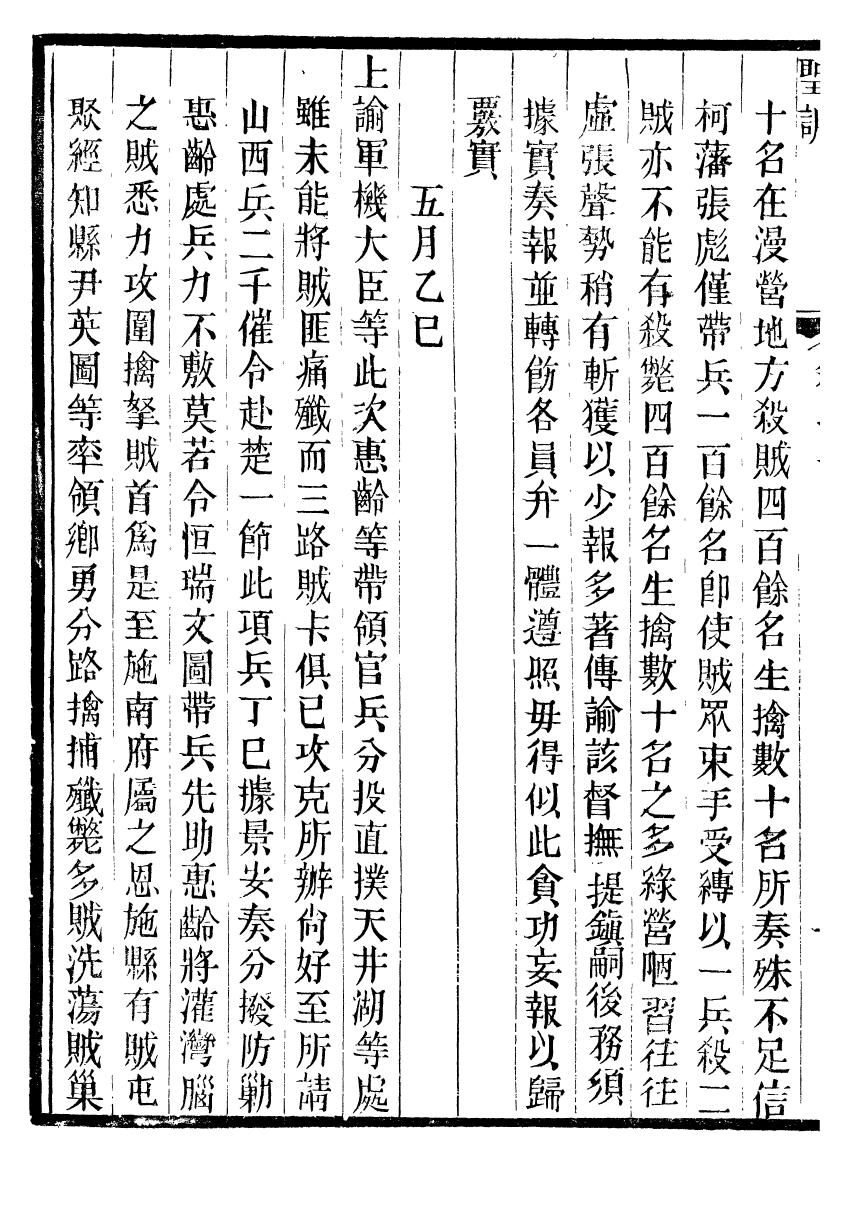 聖訓
十名在漫營地方殺賊四百餘名生擒數十名所奏殊不足信
柯藩張彪僅帶兵一百餘名卽使賊眾束手受縛以一兵殺二
賊亦不能有殺斃四百餘名生擒數十名之多綠營陋習往往
虛張聲勢稍有斬獲以少報多著傳諭該督撫提鎮嗣後務須
據實奏報並轉飭各員弁一體遵照毋得似此貪功妄報以歸
覈實
五月乙巳
上諭軍機大臣等此次惠齡等帶領官兵分投直撲天井湖等處
雖未能將賊匪痛殲而三路賊卡俱已攻克所辦尙好至所請
山西兵二千催令赴楚一節此項兵丁已據景安奏分撥防勦
惠齡處兵力不敷莫若令恒瑞文圖帶兵先助惠齡將灌灣腦
之賊悉力攻圍擒拏賊首爲是至施南府屬之恩施縣有賊屯
聚經知縣尹英圖等率領鄉勇分路擒捕殲斃多賊洗蕩賊巢